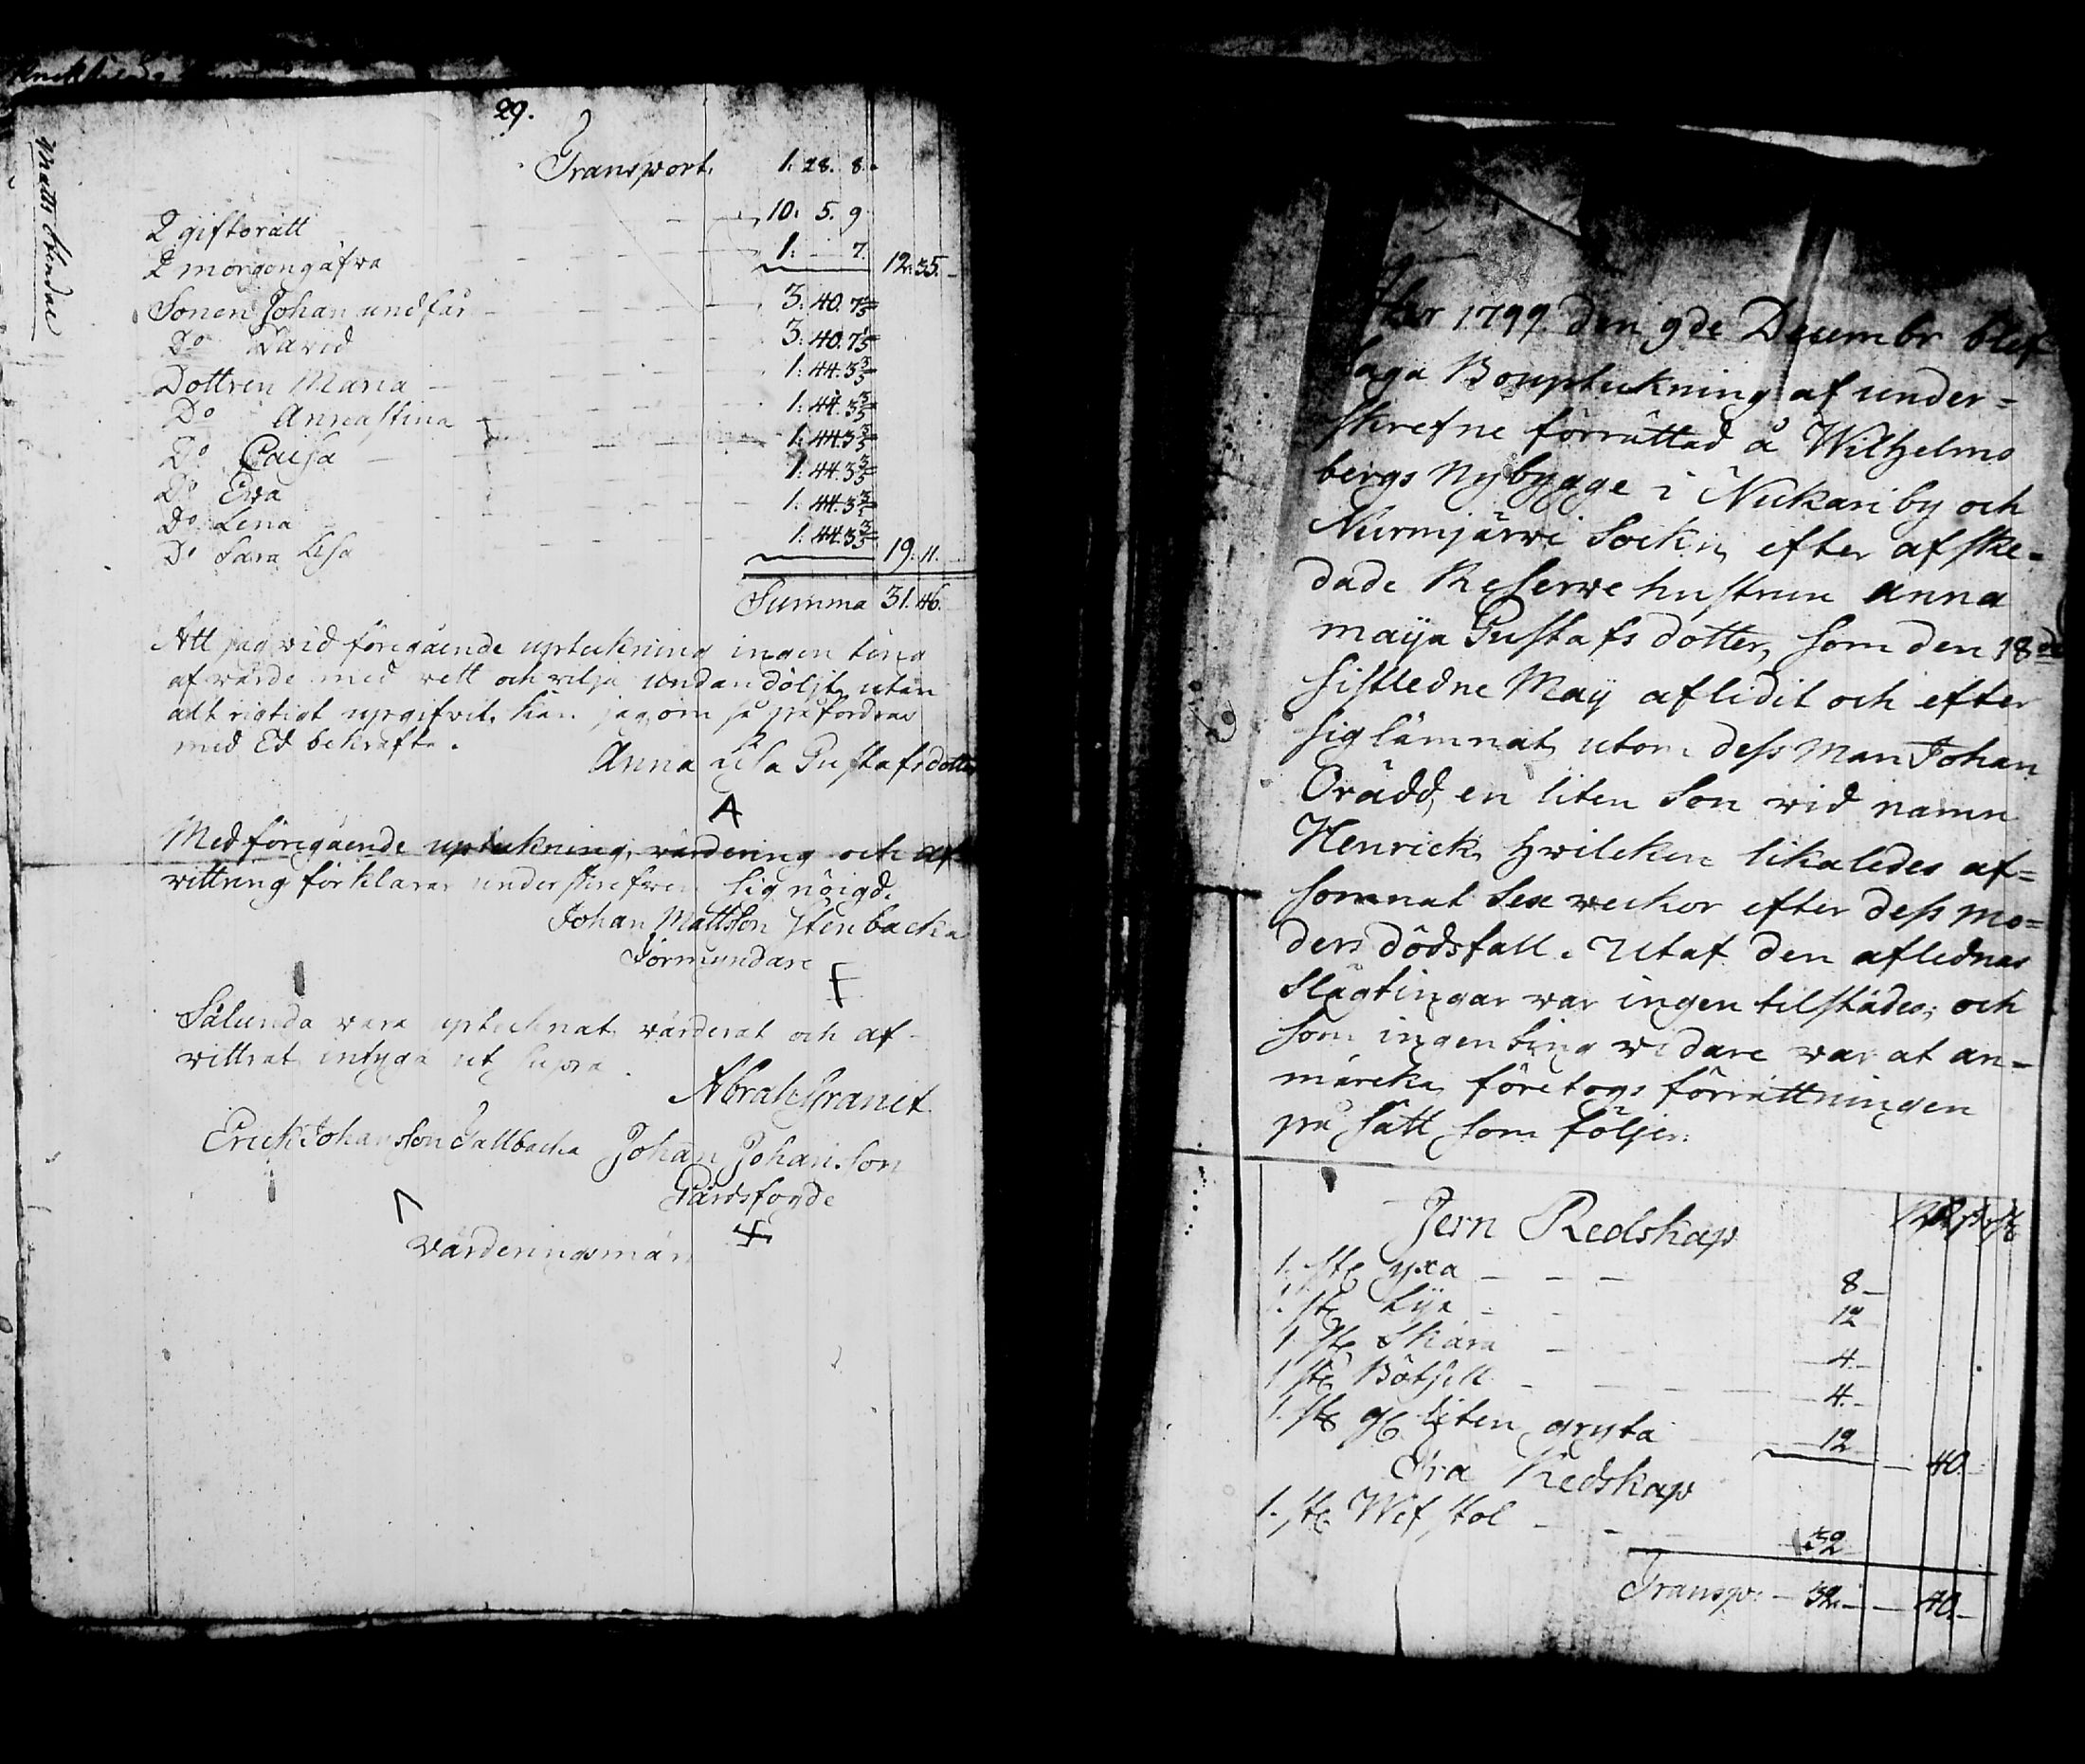 29.
Matts Lindar
Transport. 1. 28. 8.
2 giftorätt 10: 5. 9
2 morgongåfva 1: — 7. 12: 35.
Sonen Johan undfår 3: 40. 7 1/5
Do David 3: 40. 7 1/5
Dottren Maria 1: 44. 3 3/5
Do Annastina 1: 44. 3 3/5
Do Caisa 1: 44. 3 3/5
Do Ewa 1: 44. 3 3/5
Do Lena 1: 44. 3 3/5
Do Sara Lisa 1: 44. 3 3/5 19. 11.
Summa 31. 46.
Att jag vid föregående upteckning ingen ting
af värde med vett och vilja undandöljt, utan
alt rigtigt upgifvit, kan jag, om så påfordras
med Ed bekräfta.
Anna Lisa Gustafsdotter
A
Med föregående upteckning, värdering och af-
vittring förklarar underskrefven sig nöigd.
Johan Mattsson Stenbacka
Förmyndare
Sålunda vara uptecknat, värderat och af-
vittrat, intyga ut supra.
Abrah Granit
Erick Johansson Tallbacka Johan Johansson
Gårdsfogde
Värderingsmän
Åhr 1799 den 9de Desembr blef
laga Bouptekning af under=
skrefne förrättad å Wilhelms
bergs Nybygge i Nukari by och
Nurmjärwi Sockn, efter afske=
dade Reserve hustrun Anna
maija Gustafs dotter, som den 18de
sistledne Maij aflidit och efter
sig lämnat, utom dess Man Johan
Orädd, en liten Son vid namn
Henrick, hvilcken likaledes af=
somnat Sex weckor efter dess mo=
ders dödsfall. Utaf den aflednas
Slägtingar var ingen tilstädes, och
som ingen ting vidare var at an=
märcka, företogs förrättningen
på sätt som följer:
Jern Redskap
1. st. yxa 8
1. st. Lija 12
1 st. Skära 4
1 st. Bötsell 4
1. st. gl liten gryta 12 40
Trä Redskap
1. st. Wäf stol 32
Transp: 32 40